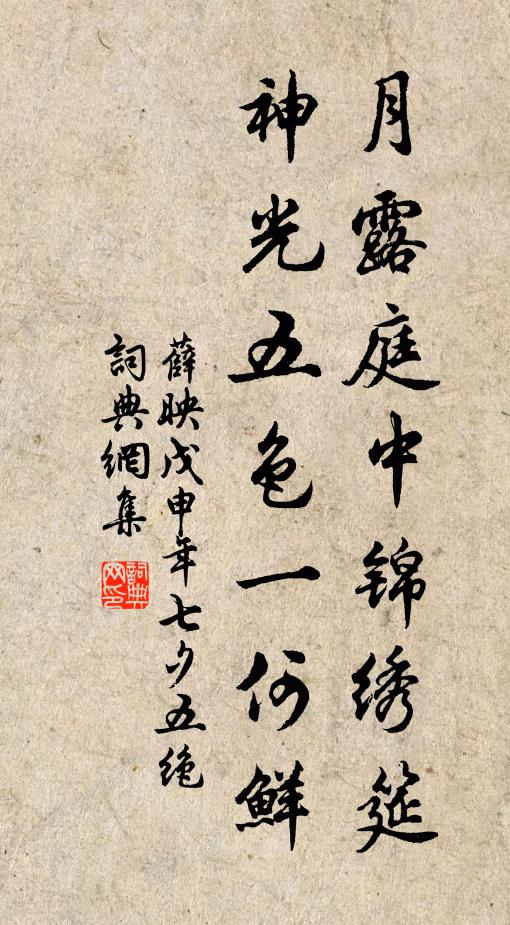 月露庭中锦绣筵
神光五色一何鲜
薛映戊申年七夕五绝
詞典網集
詞典网印